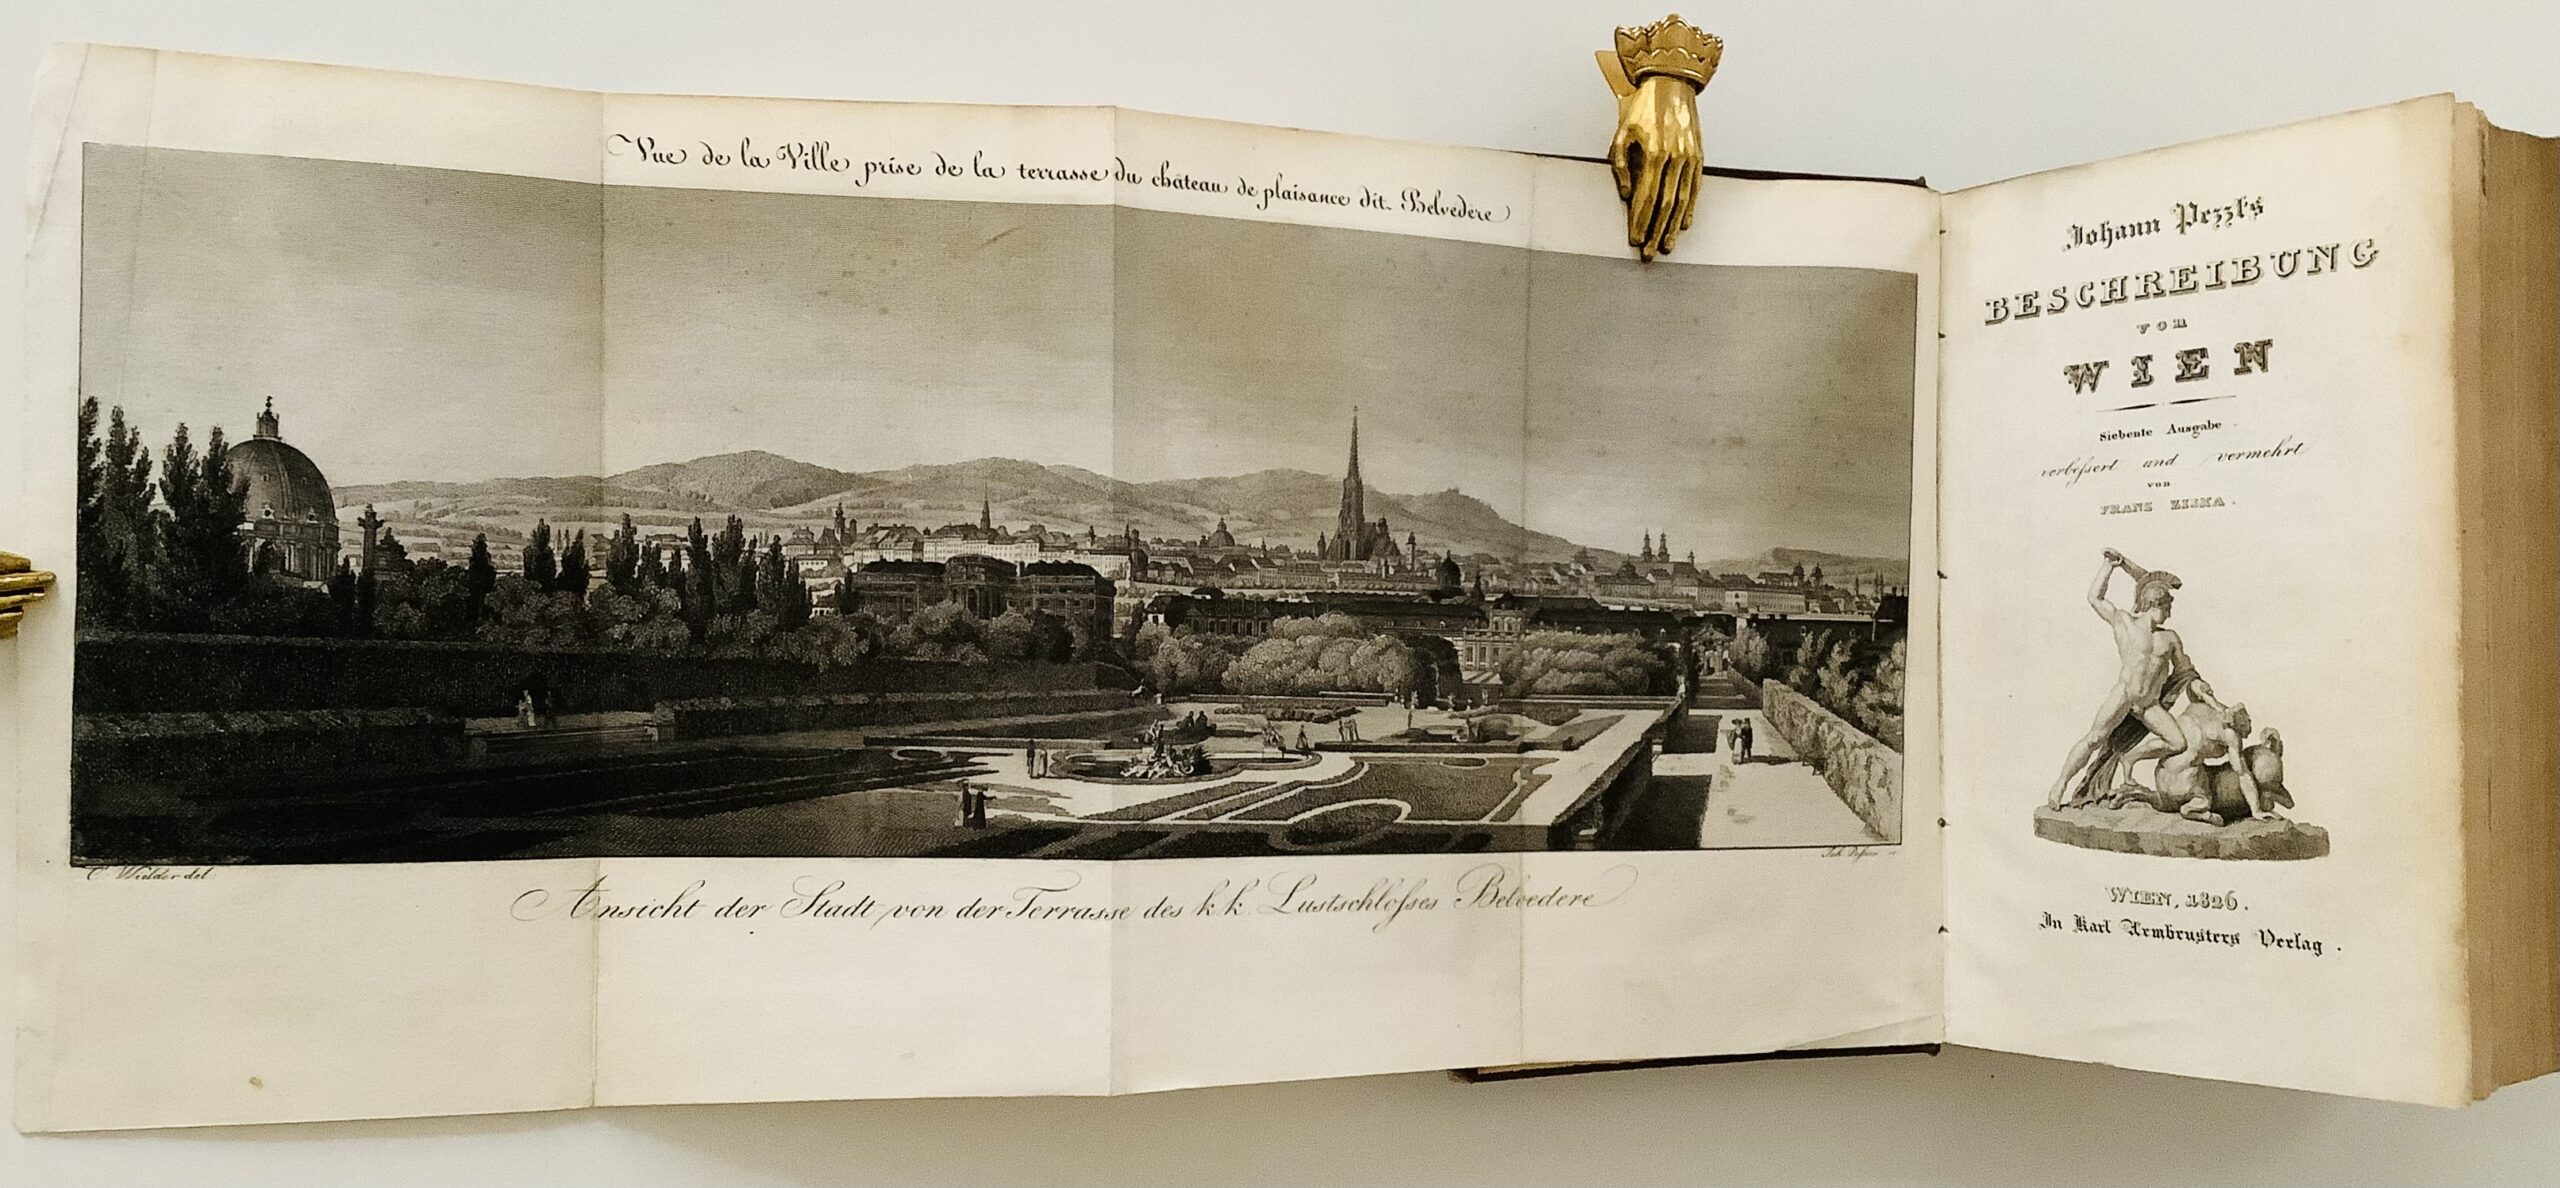 Vue de la Ville prise de la terrasse du château de plaisance dit Belvedere
C. Wielder del
Ansicht der Stadt von der Terrasse des k.k. Lustschloſses Belvedere
Johann Pezzl's
BESCHREIBUNG
von
WIEN
Siebente Ausgabe
verbeſsert und vermehrt
von
FRANZ ZISKA.
WIEN, 1826.
In Karl Armbrusters Verlag.